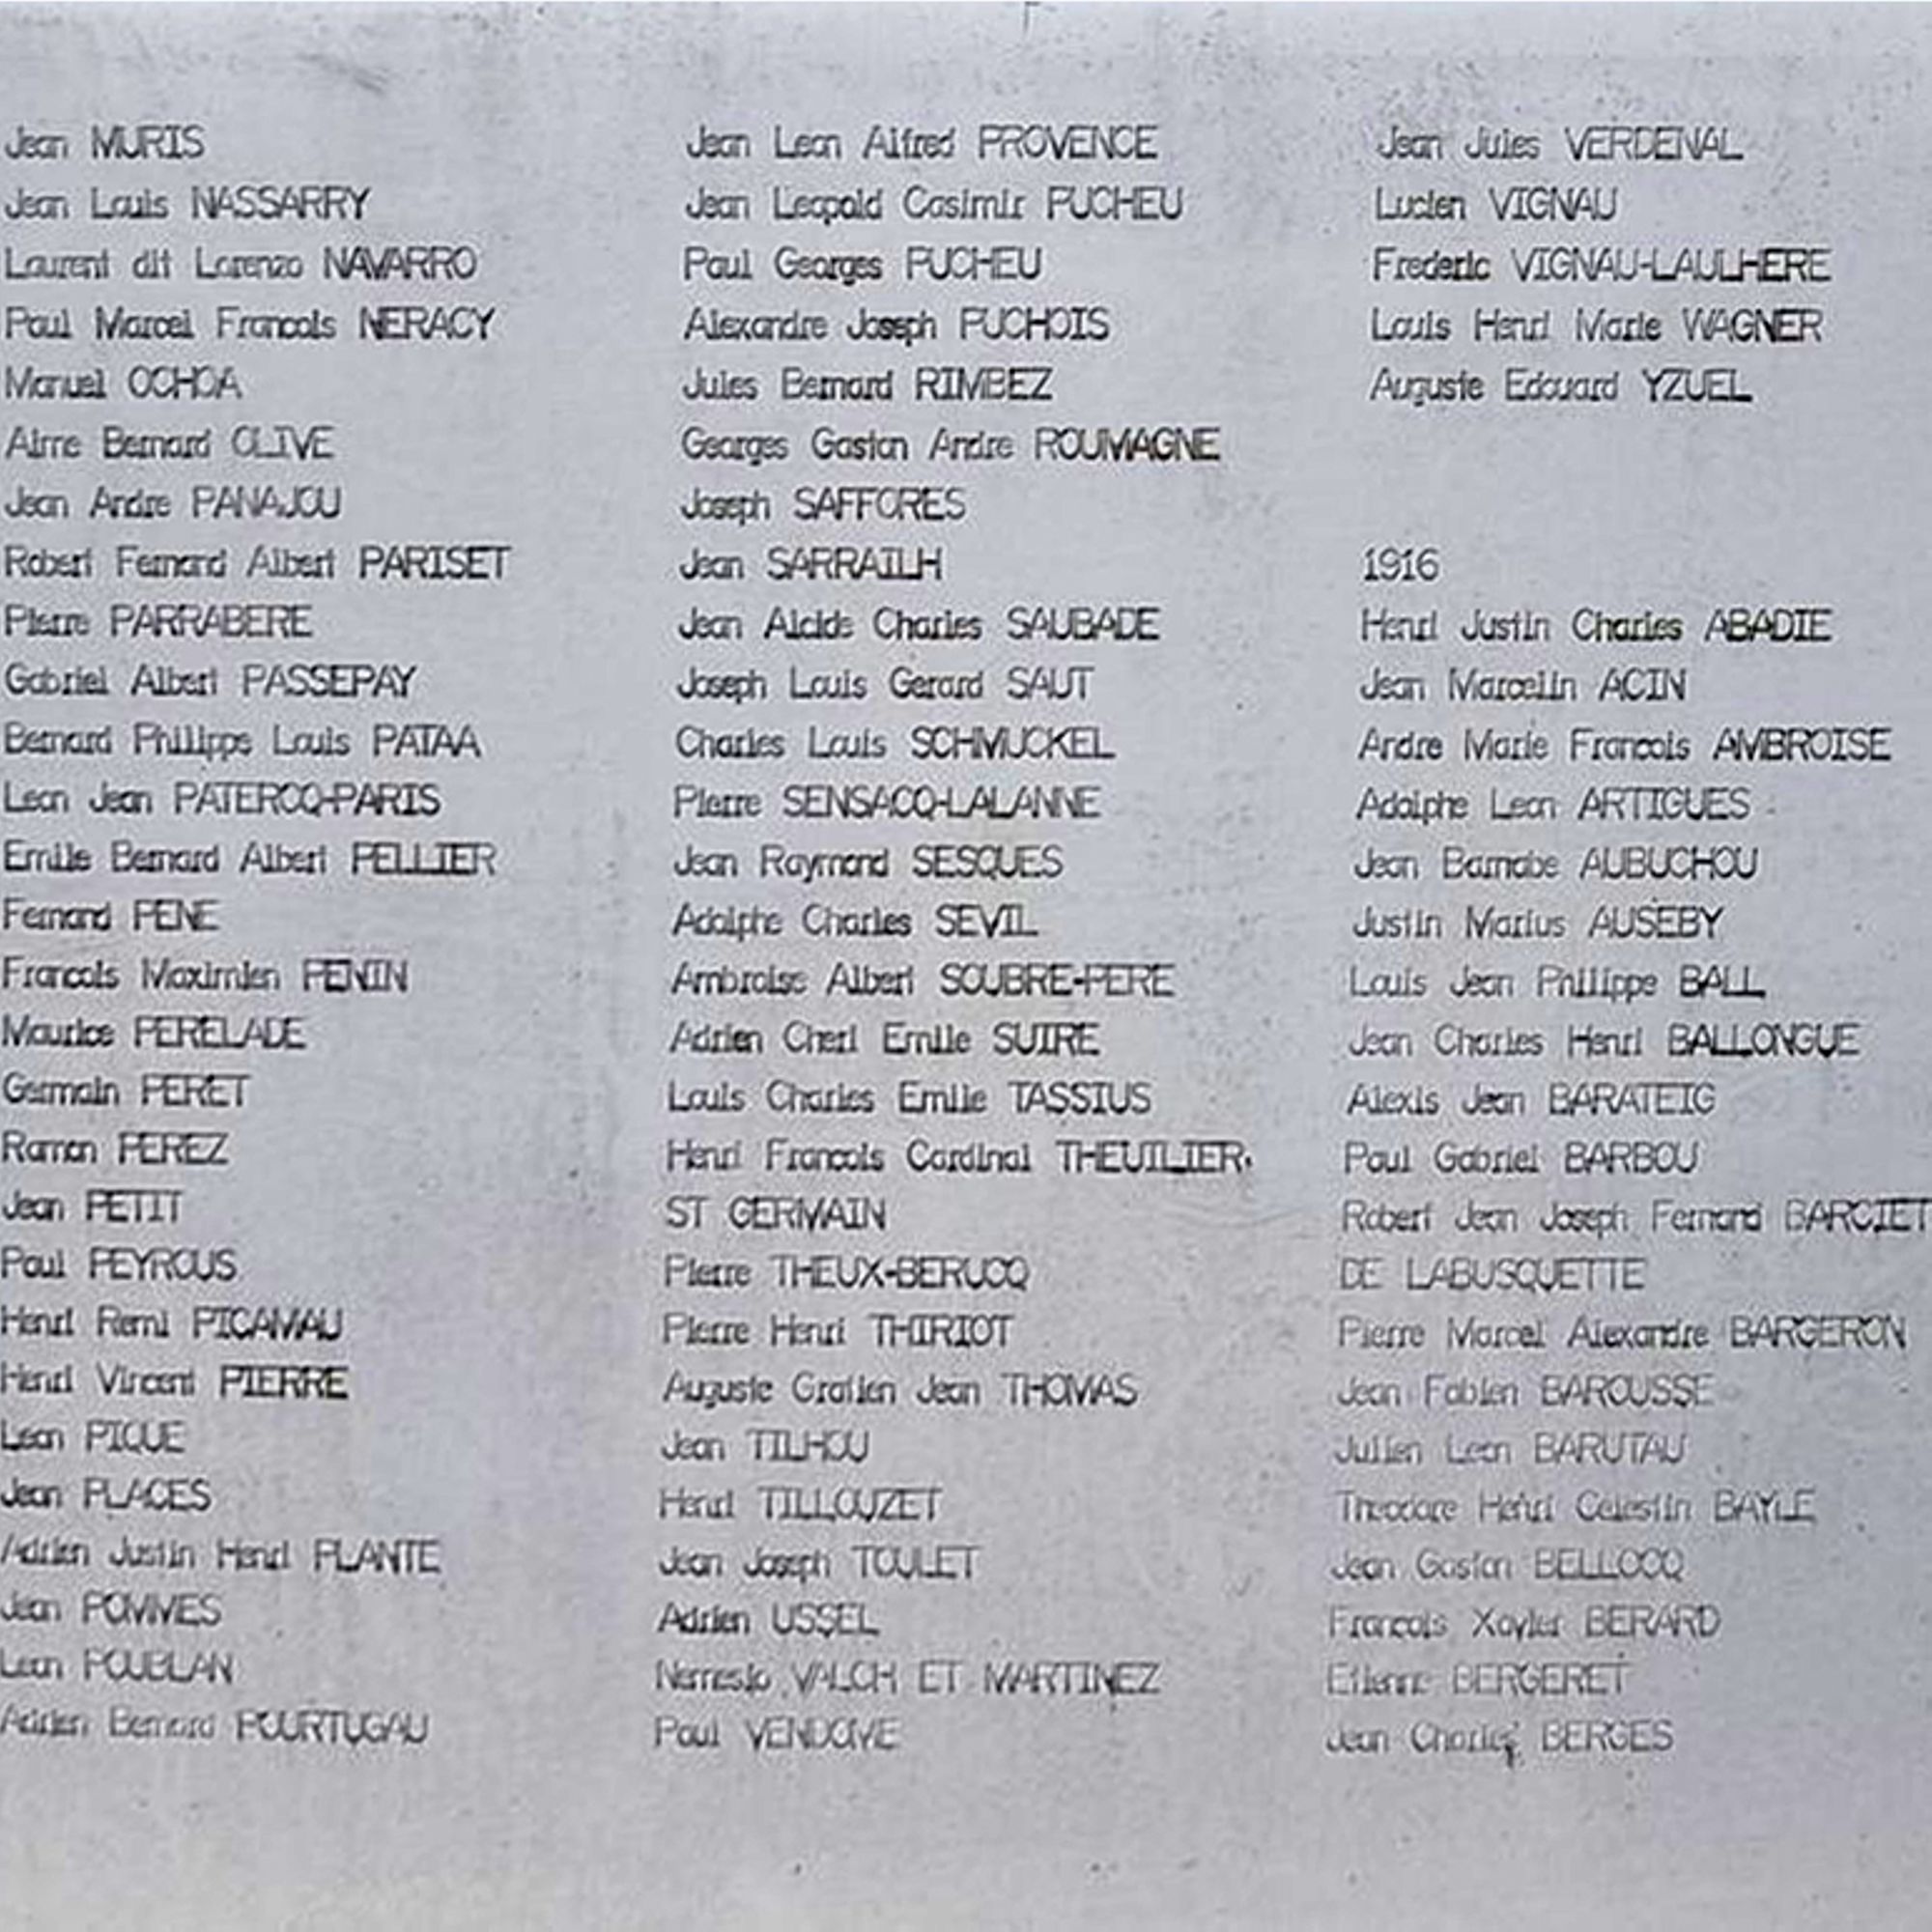 Jean MURIS
Jean Louis NASSARRY
Laurent dit Lorenzo NAVARRO
Paul Marcel Francois NERACY
Manuel OCHOA
Aime Bernard OLIVE
Jean Andre PANAJOU
Robert Fernand Albert PARISET
Pierre PARRABERE
Gabriel Albert PASSEPAY
Bernard Philippe Louis PATAA
Leon Jean PATERCQ-PARIS
Emile Bernard Albert PELLIER
Fernand PENE
Francois Maximien PENIN
Maurice PERELADE
Germain PERET
Ramon PEREZ
Jean PETIT
Paul PEYROUS
Henri Remi PICAMAU
Henri Vincent PIERRE
Leon PIQUE
Jean PLACES
Adrien Justin Henri PLANTE
Jean POMMES
Leon POUBLAN
Adrien Bernard POURTUGAU
Jean Leon Alfred PROVENCE
Jean Leopold Casimir PUCHEU
Paul Georges PUCHEU
Alexandre Joseph PUCHOIS
Jules Bernard RIMBEZ
Georges Gaston Andre ROUMAGNE
Joseph SAFFORES
Jean SARRAILH
Jean Alcide Charles SAUBADE
Joseph Louis Gerard SAUT
Charles Louis SCHMUCKEL
Pierre SENSACQ-LALANNE
Jean Raymond SESQUES
Adolphe Charles SEVIL
Ambroise Albert SOUBRE-PERE
Adrien Cheri Emile SUIRE
Louis Charles Emile TASSIUS
Henri Francois Cardinal THEUILIER
ST GERMAIN
Pierre THEUX-BERUCQ
Pierre Henri THIRIOT
Auguste Gratien Jean THOMAS
Jean TILHOU
Henri TILLOUZET
Jean Joseph TOULET
Adrien USSEL
Nemesio VALCH ET MARTINEZ
Paul VENDOME
Jean Jules VERDENAL
Lucien VIGNAU
Frederic VIGNAU-LAULHERE
Louis Henri Marie WAGNER
Auguste Edouard YZUEL
1916
Henri Justin Charles ABADIE
Jean Marcelin ACIN
Andre Marie Francois AMBROISE
Adolphe Leon ARTIGUES
Jean Barnabe AUBUCHOU
Justin Marius AUSEBY
Louis Jean Philippe BALL
Jean Charles Henri BALLONGUE
Alexis Jean BARATEIG
Paul Gabriel BARBOU
Robert Jean Joseph Fernand BARCIET
DE LABUSQUETTE
Pierre Marcel Alexandre BARGERON
Jean Fabien BAROUSSE
Julien Leon BARUTAU
Theodore Henri Celestin BAYLE
Jean Gaston BELLOCQ
Francois Xavier BERARD
Etienne BERGERET
Jean Charles BERGES